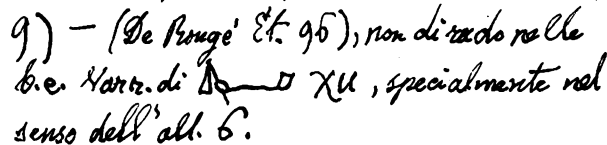 9) — (De Rougé Ét. 96), non di rado nelle
b.e. Narr. di XU, specialmente nel
senso dell'all. 6.